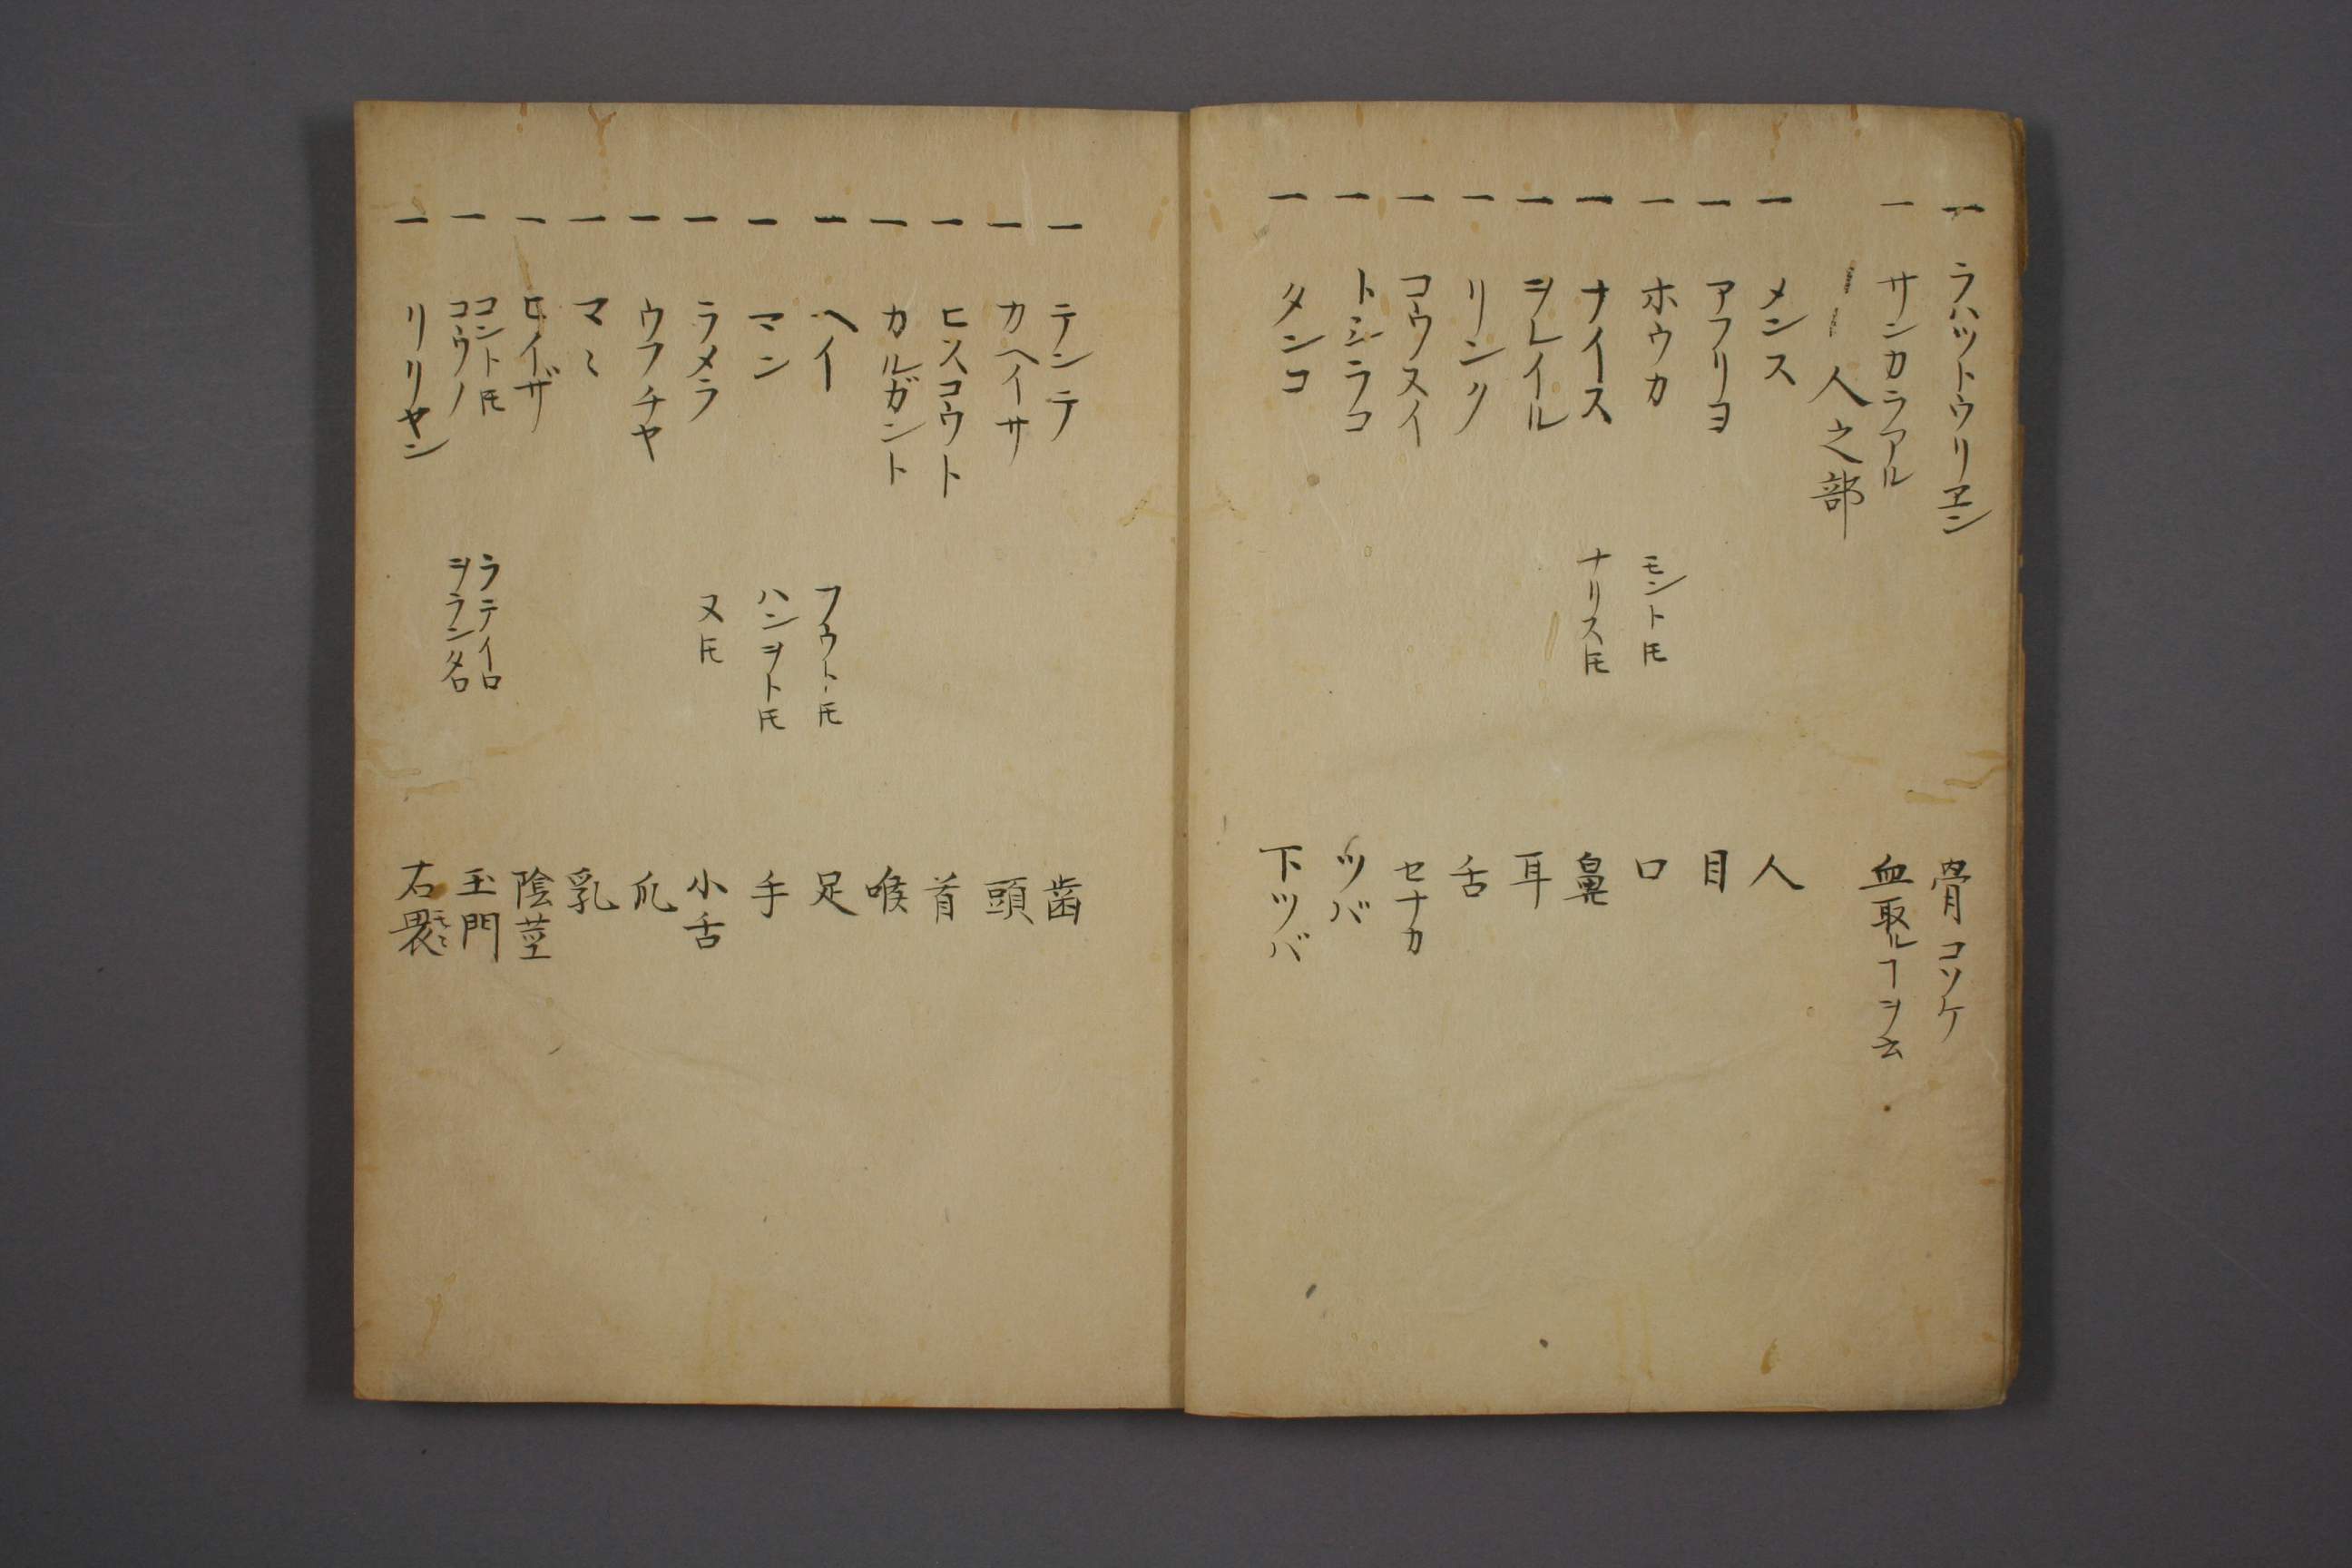 一 ラハットウリヱン 骨コソケ
一 サンカラアル 血取ルヿヲ云
人之部
一 メンス 人
一 アフリヨ 目
一 ホウカ モント𪜈 口
一 ナイス ナリス𪜈 鼻
一 ヲレイル 耳
一 リンク 舌
一 コウスイ セナカ
一 トシラコ ツバ
一 タンコ 下ツバ
一 テンテ 歯
一 カヘイサ 頭
一 ヒスコウト 首
一 カルガント 喉
一 ヘイ フウト𪜈 足
一 マン ハンヲト𪜈 手
一 ラメラ 又𪜈 小舌
一 ウフチヤ 爪
一 マミ 乳
一 ヒイザ 陰莖
一 コント𪜈 コウノ ラテイロ ヲランタ口 玉門
一 リリヤン 右